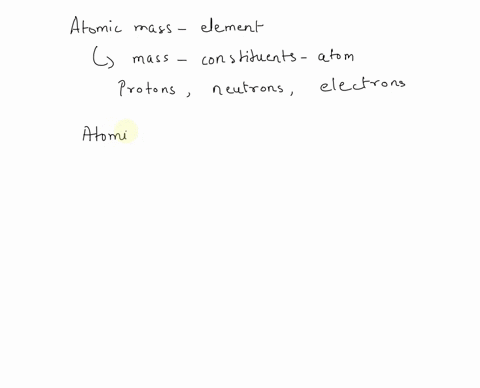 Atomic mass - element
↳ mass - constituents - atom
Protons, neutrons, electrons
Atomi